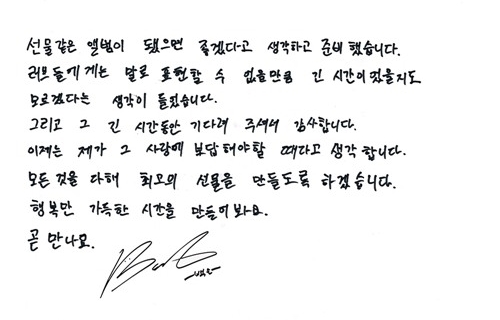 선물같은 앨범이 됐으면 좋겠다고 생각하고 준비했습니다.
러브들에게는 말로 표현할 수 없을만큼 긴 시간이었을지도
모르겠다는 생각이 들었습니다.
그리고 그 긴 시간동안 기다려 주셔서 감사합니다.
이제는 제가 그 사랑에 보답해야할 때라고 생각합니다.
모든것을 다해 최고의 선물을 만들도록 하겠습니다.
행복만 가득한 시간을 만들어봐요.
곧 만나요.